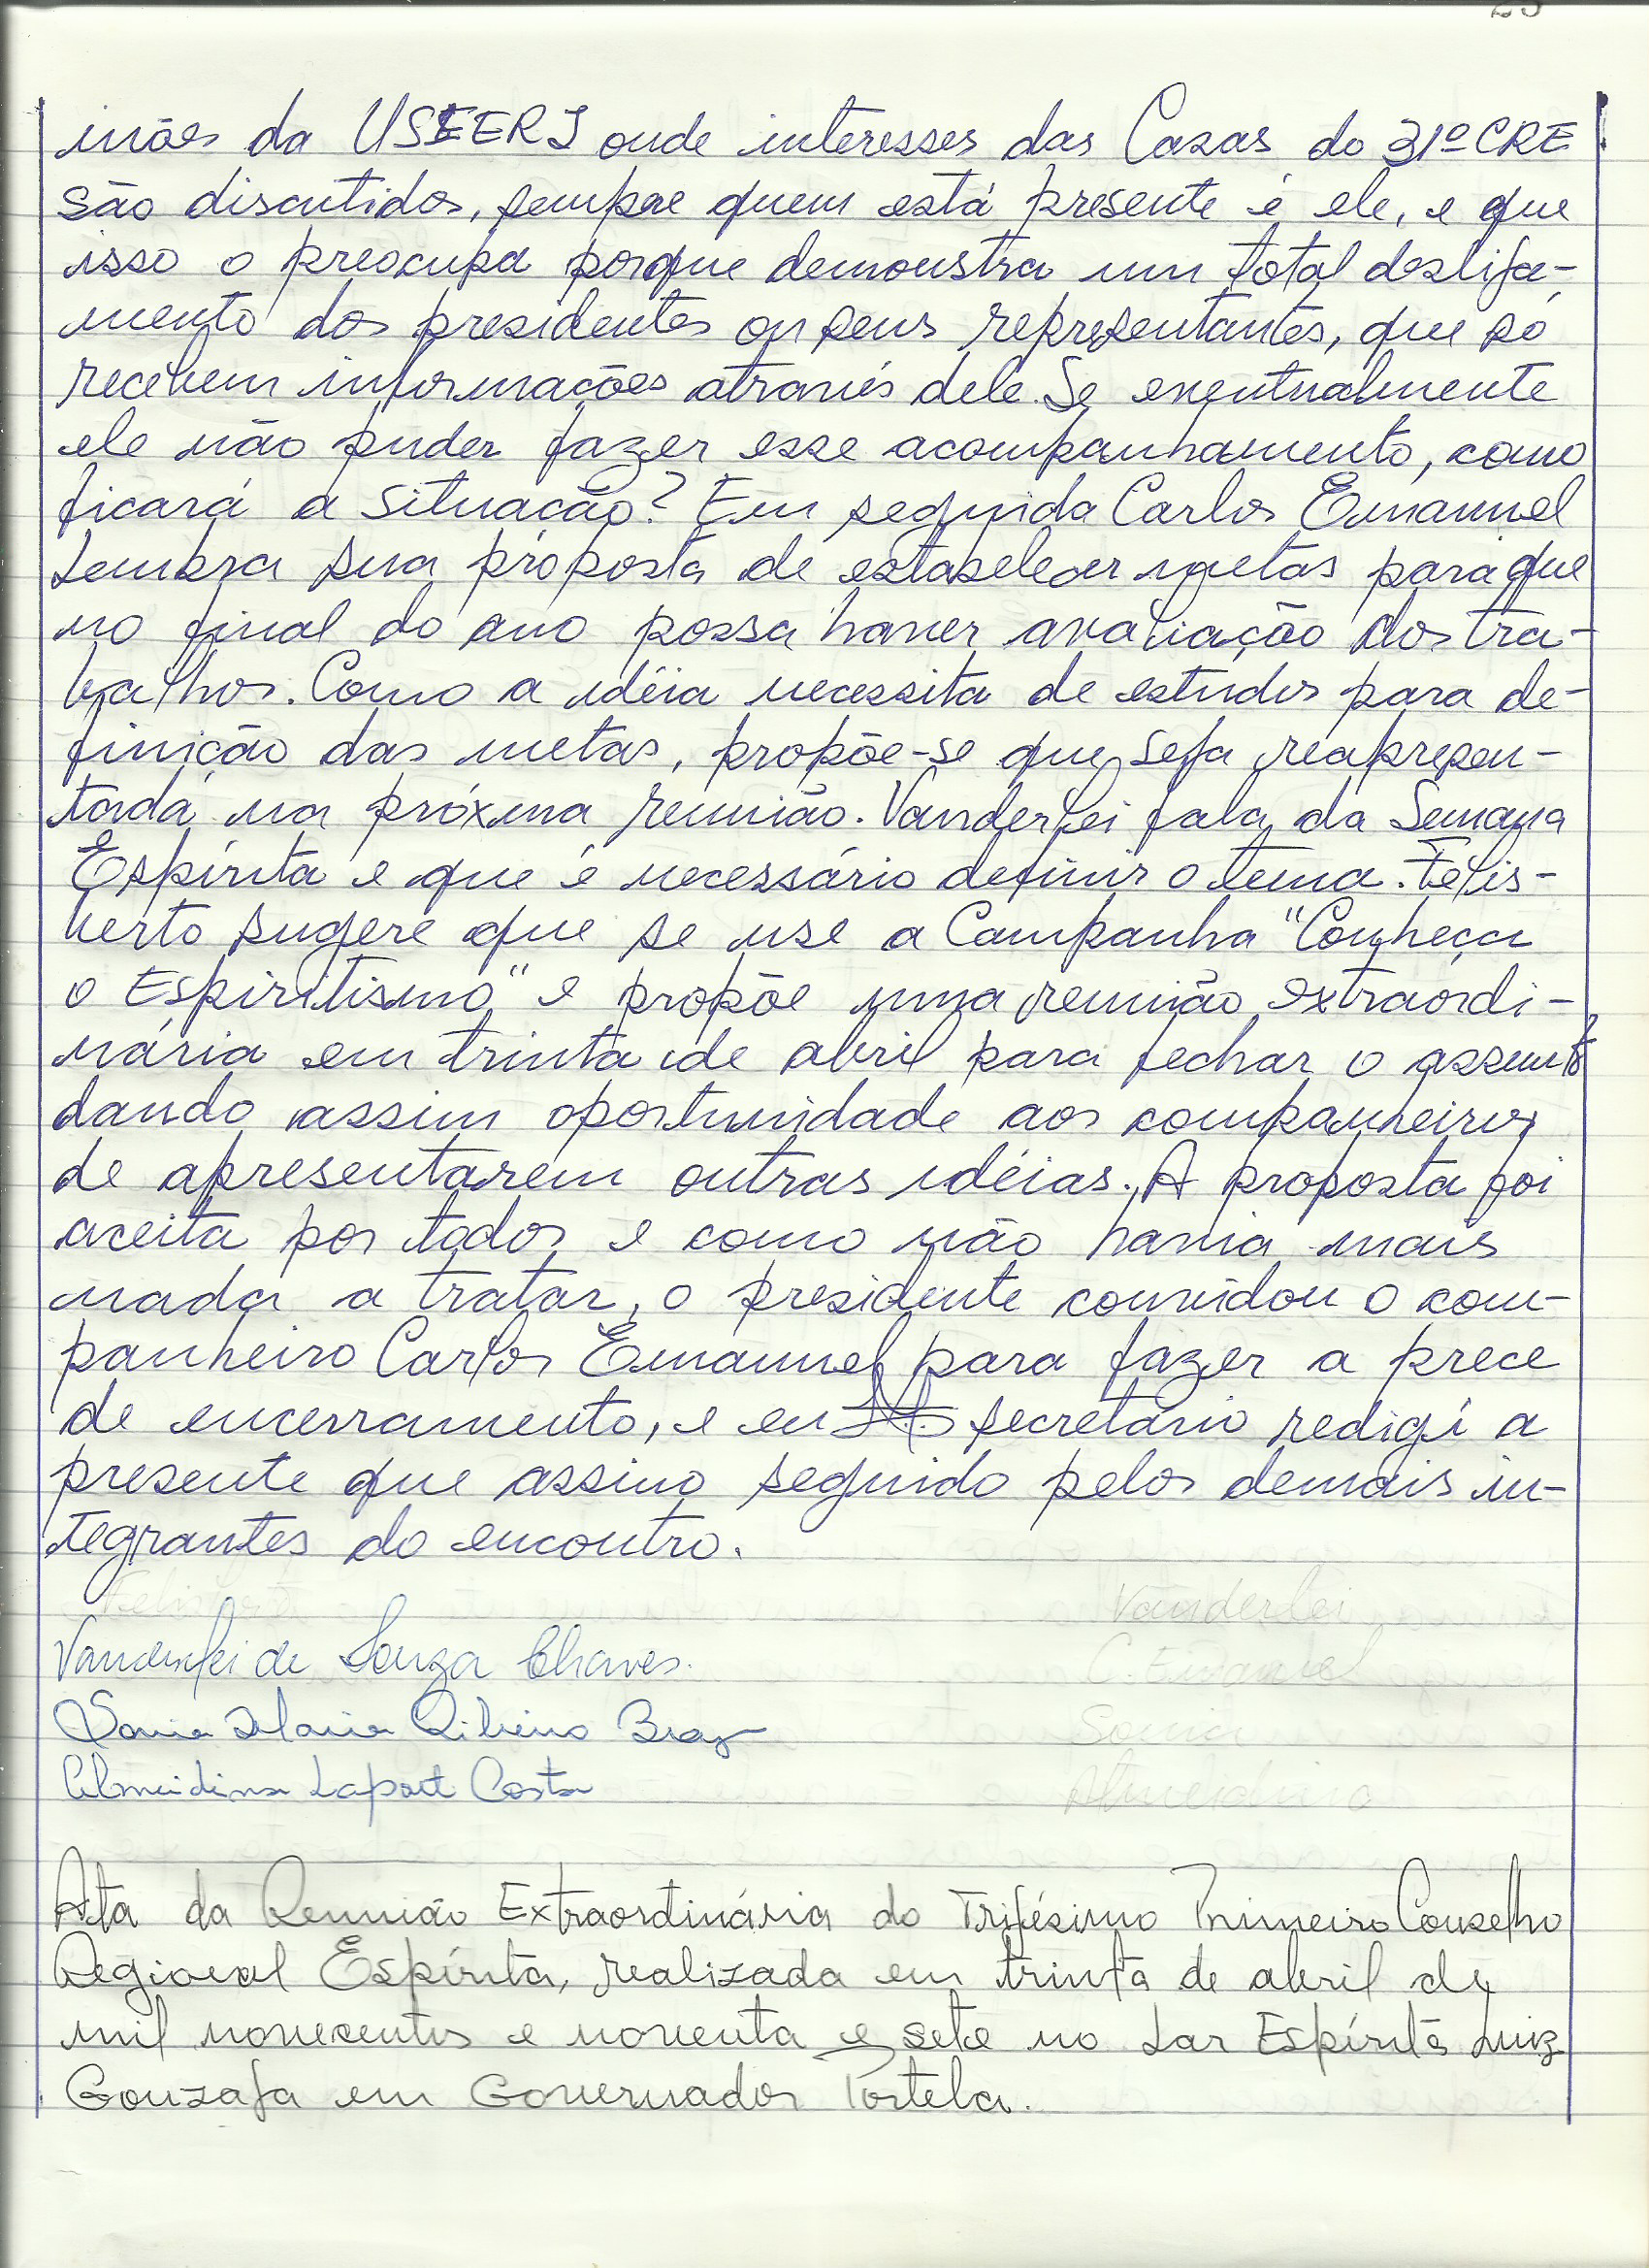 niões da USEERJ onde interesses das Casas do 31º CRE
são discutidos, sempre quem está presente é ele, e que
isso o preocupa porque demonstra um total desliga-
mento dos presidentes ou seus representantes, que só
recebem informações através dele. Se eventualmente
ele não puder fazer esse acompanhamento, como
ficará a situação? Em seguida Carlos Emannuel
lembra sua proposta de estabelecer metas para que
no final do ano possa haver avaliação dos tra-
balhos. Como a idéia necessita de estudos para de-
finição das metas, propõe-se que seja reapresen-
tada na próxima reunião. Vanderlei fala da Semana
Espírita e que é necessário definir o tema. Felis-
berto sugere que se use a Campanha "Conheça
o Espiritismo" e propõe uma reunião extraordi-
nária em trinta de abril para fechar o assunto
dando assim oportunidade aos companheiros
de apresentarem outras idéias. A proposta foi
aceita por todos e como não havia mais
nada a tratar, o presidente convidou o com-
panheiro Carlos Emannuel para fazer a prece
de encerramento, e eu secretário redigi a
presente que assino seguido pelos demais in-
tegrantes do encontro.
Felisberto Vanderlei
Vanderlei de Souza Chaves.
C. Emanuel
Sonia Maria Ribeiro Braz
Sonia
Almeidina Laport Costa
Almeidina
Ata da Reunião Extraordinária do Trigésimo Primeiro Conselho
Regional Espírita, realizada em trinta de abril de
mil novecentos e noventa e sete no Lar Espírita Luiz
Gonzaga em Governador Portela.